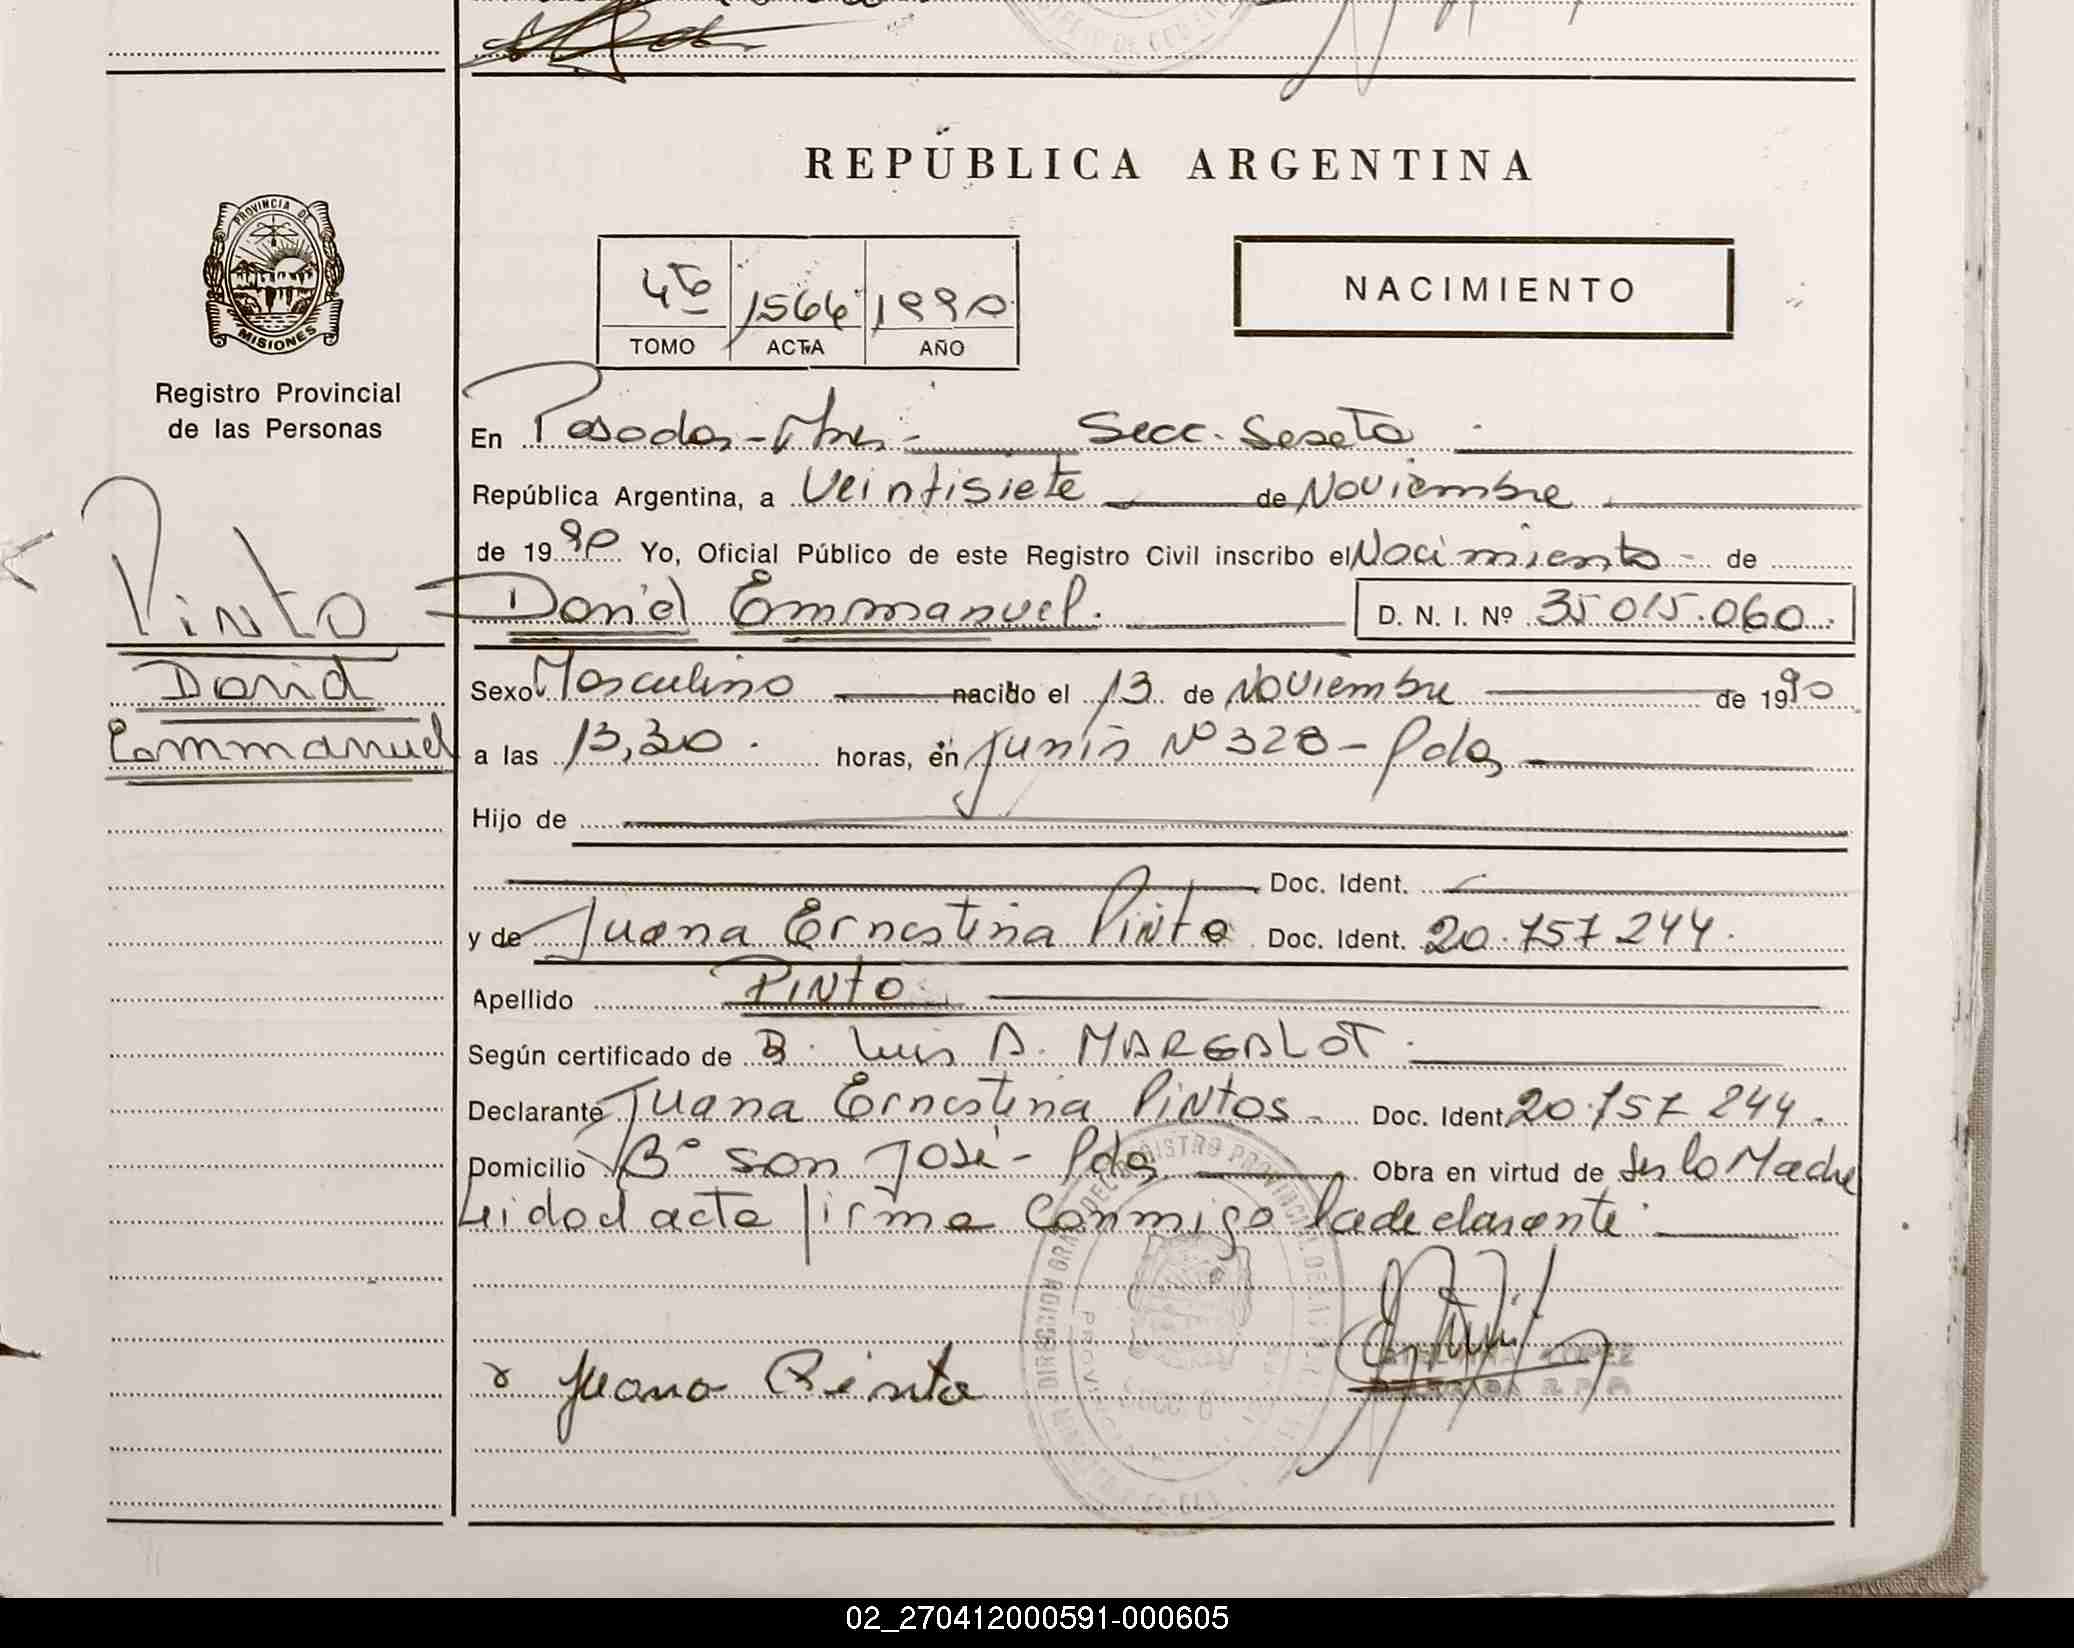 REPÚBLICA ARGENTINA
PROVINCIA DE
MISIONES
Registro Provincial
de las Personas
4to 1564 1990
TOMO ACTA AÑO
NACIMIENTO
En Posadas-Mnes- Secc. Sexta
República Argentina, a Veintisiete de Noviembre
de 1990 Yo, Oficial Público de este Registro Civil inscribo el Nacimiento de
Pinto
David
Emmanuel
David Emmanuel. D. N. I. Nº 35 015.060
Sexo Masculino nacido el 13 de Noviembre de 1990
a las 13,30. horas, en Junin Nº 328- Pdas
Hijo de
Doc. Ident.
y de Juana Ernestina Pinto Doc. Ident. 20.757 244.
Apellido PINTO
Según certificado de B. Luis A. MARGALOT.
Declarante Juana Ernestina Pintos Doc. Ident. 20.757 244.
Domicilio Bº San José- Pdas Obra en virtud de Ser la Madre
Leida el acta firma Conmigo la declarante.
Juana Pinto
02_270412000591-000605